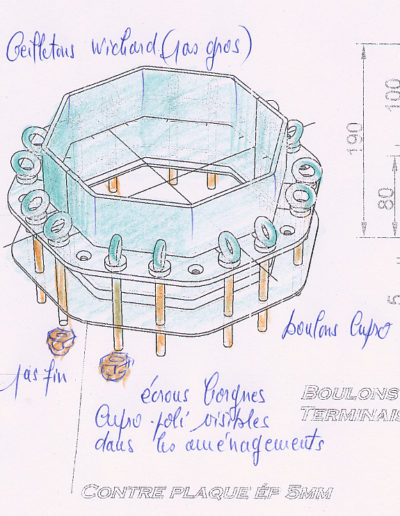 Oeilletons Wichard (pas gros)
190
100
80
5
boulons Cupro
pas fin
écrous borgnes
Cupro-poli visibles
dans les aménagements
BOULONS
TERMINAIS
CONTRE PLAQUE ÉP 5MM